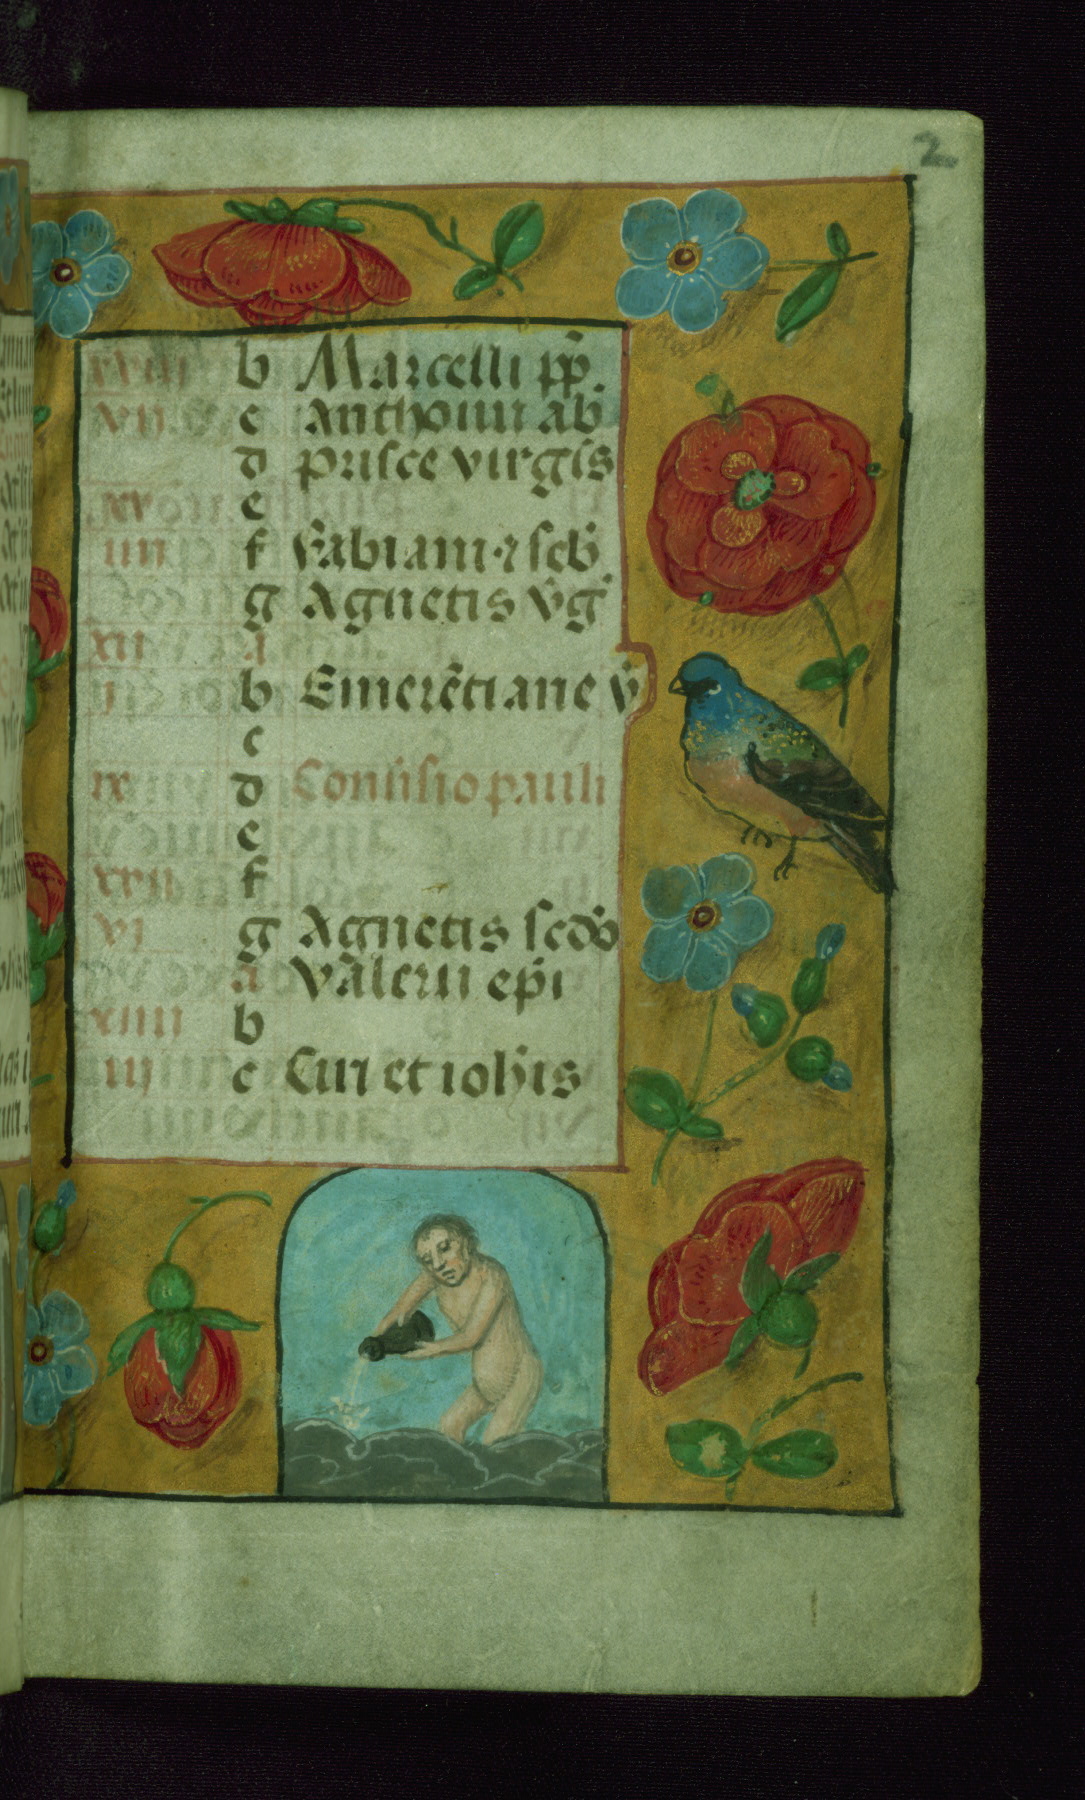 2
xviii b Marcelli pp̄.
vii c Anthonii ab̄
d prisce virgīs
xv e
iiii f Fabiani · ⁊ seb̄
g Agnetis v̄ḡ
xii a
i b Emerēciane v̄
c
ix d Conūsio pauli
e
xvii f
vi g Agnetis scdō
a Valerii ep̄i
xiiii b
iii c Ciri et ioh̄is